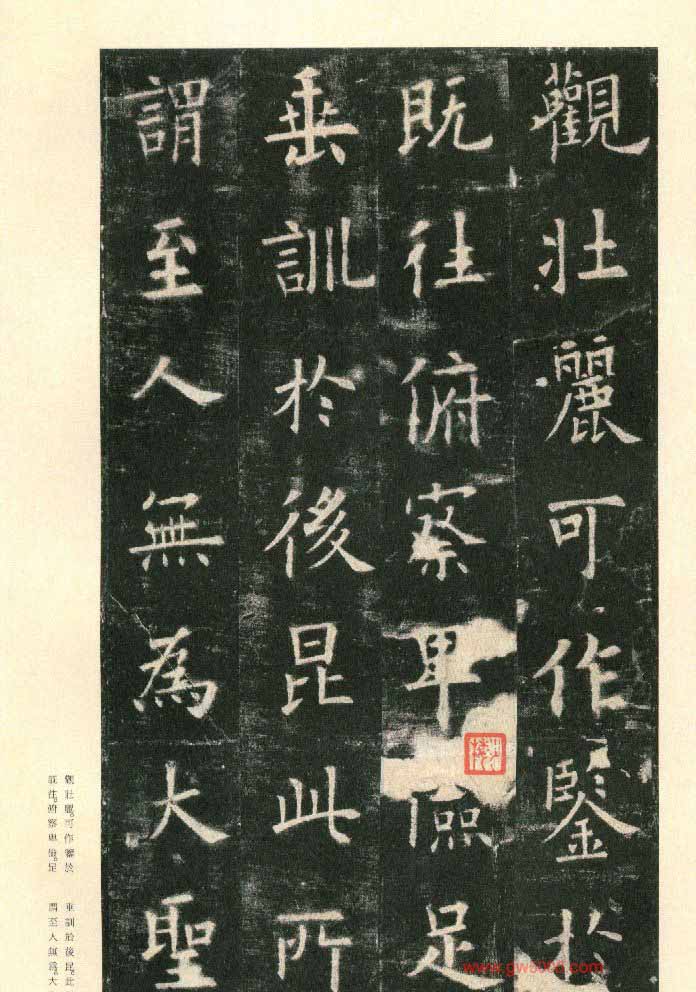 觀壯麗可作鑒於
既往俯察卑儉足
垂訓於後昆此所
謂至人無為大聖
觀壯麗。可作鑒於
既往。俯察卑儉。足
垂訓於後昆。此
謂至人無為。大
www.gw8008.com